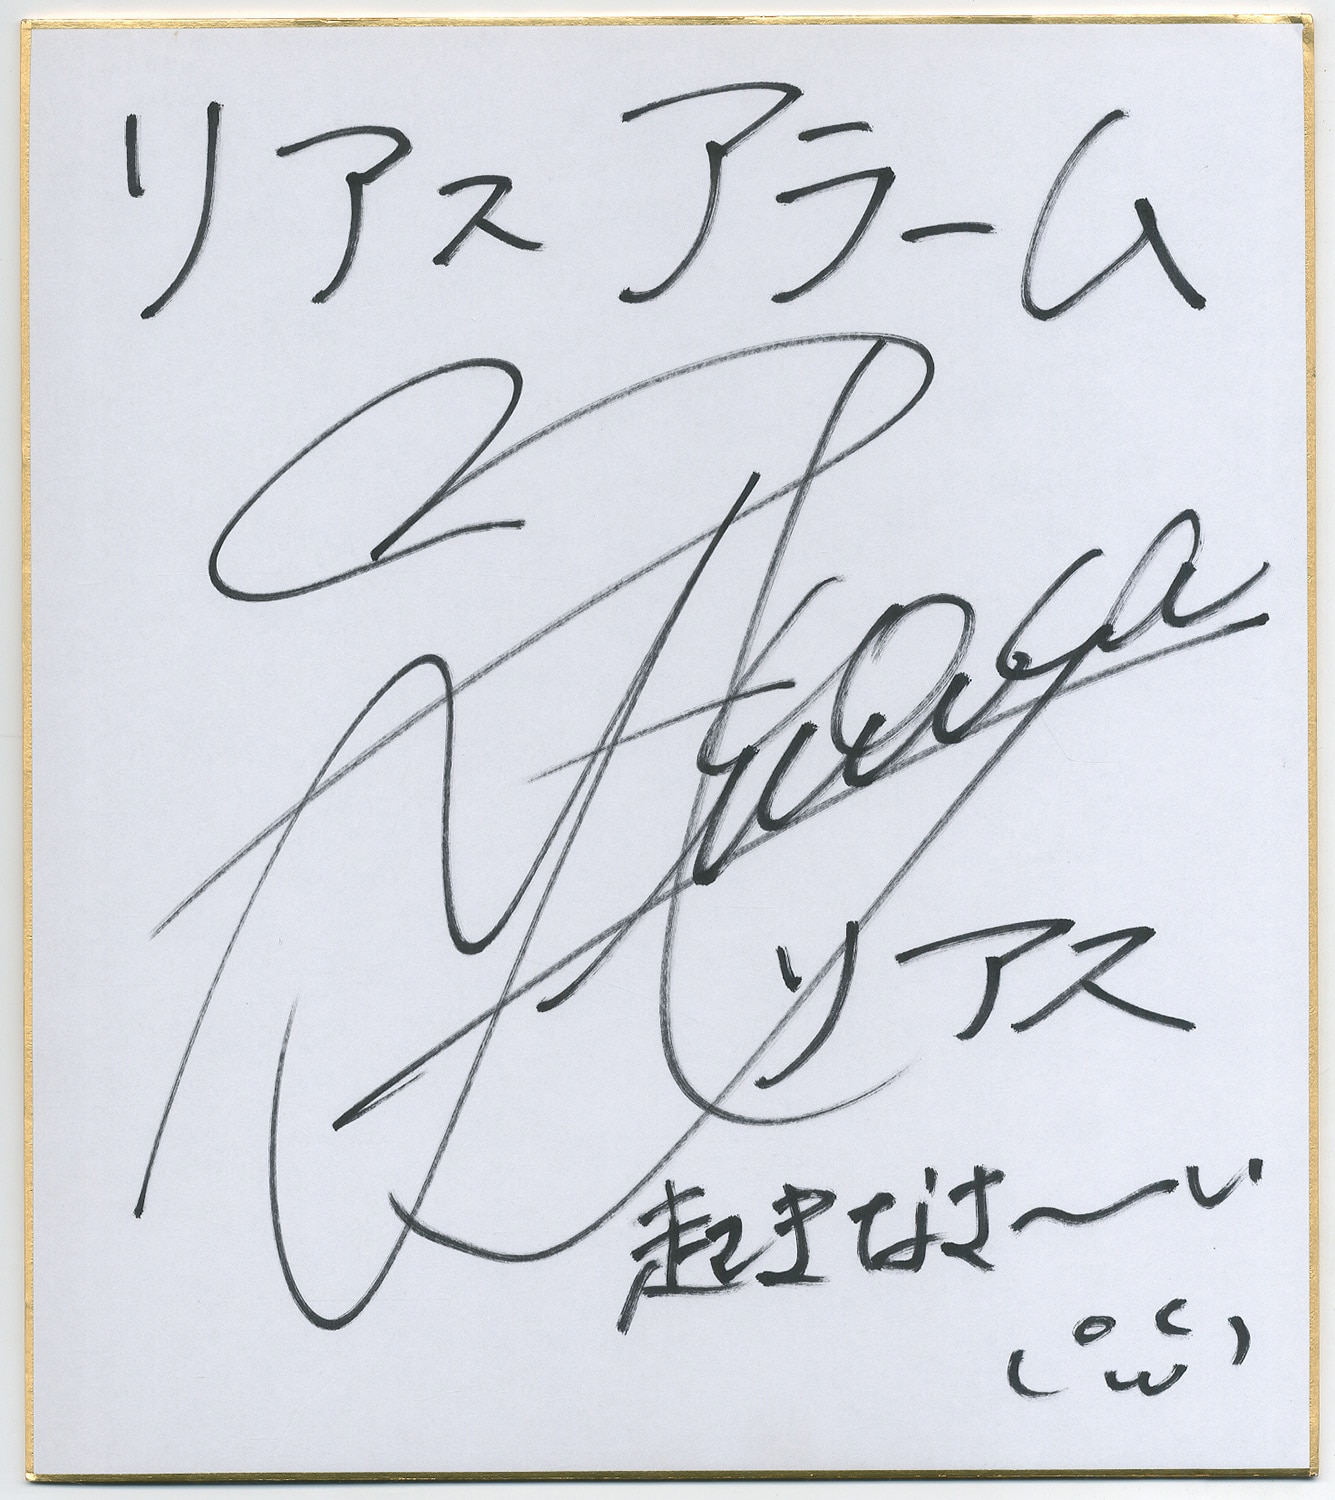 リアスアラーム
リアス
起きなさ〜い